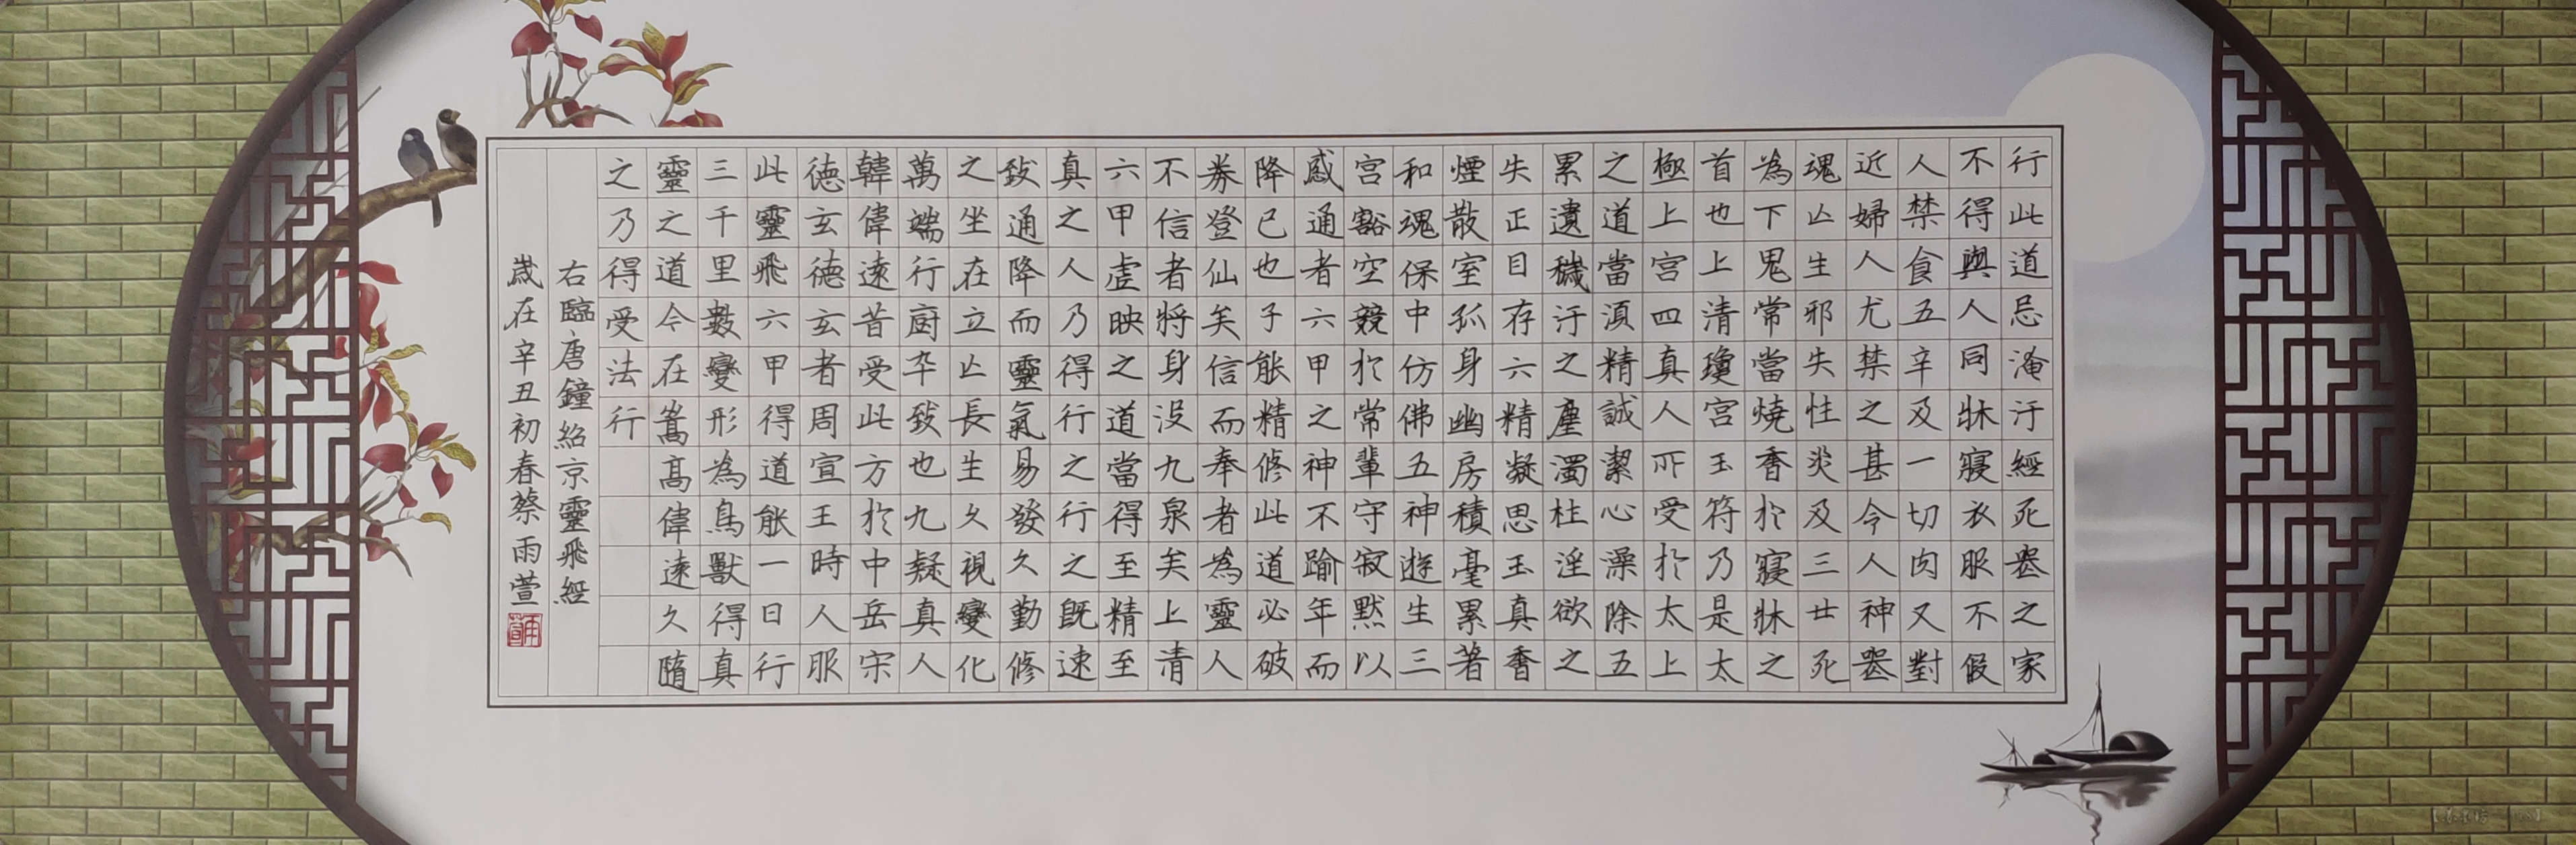 行此道忌淹汙經死喪之家
不得與人同牀寢衣服不假
人禁食五辛及一切肉又對
近婦人尤禁之甚令人神喪
魂亡生邪失性災及三世死
為下鬼常當燒香於寢牀之
首也上清瓊宮玉符乃是太
極上宮四真人所受於太上
之道當須精誠潔心澡除五
累遺穢汙之塵濁杜淫欲之
失正目存六精凝思玉真香
煙散室孤身幽房積毫累著
和魂保中仿佛五神遊生三
宮豁空競於常輩守寂默以
感通者六甲之神不踰年而
降已也子能精修此道必破
券登仙矣信而奉者為靈人
不信者將身沒九泉矣上清
六甲虛映之道當得至精至
真之人乃得行之行之既速
致通降而靈氣易發久勤修
之坐在立亡長生久視變化
萬端行廚卒致也九疑真人
韓偉遠昔受此方於中岳宋
德玄德玄者周宣王時人服
此靈飛六甲得道能一日行
三千里數變形為鳥獸得真
靈之道今在嵩高偉遠久隨
之乃得受法行
右臨唐鐘紹京靈飛經
歲在辛丑初春蔡雨萱
雨萱